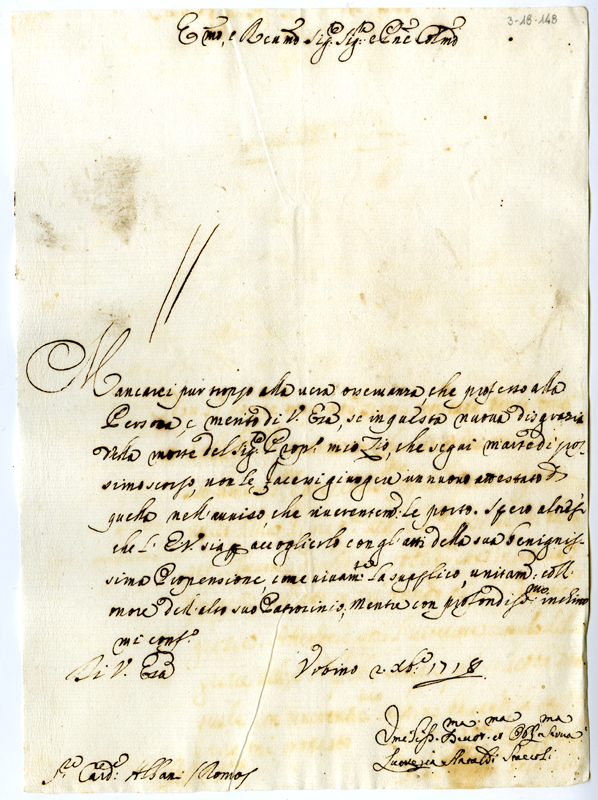 3-18-148
Emo, e Revmo Sig.r Sig.r e Pne Colmo
Mancarei pur troppo alla vera osservanza che professo alla
Persona, e merito di V. Eza, se in questa nuova disgrazia
della morte del Sig.r Prop.o mio Zio, che seguì martedì pros
simo scorso, non le facessi giungere un nuovo attestato di
quella nell'avviso, che riverentem.te le porto. Spero altresì
che L'E.V. sia p accoglierlo con gl'atti della sua benigniss
sima Propensione, come vivam.te la supplico, unitam.te coll'
onore dell'alto suo Patrocinio, mentre con profondiss.mo inchino
mi conf.o
Di V. Eza Urbino 2 Xbre 1718
Umiliss.ma Devot.ma et Obb.ma Serva
Lucrezia Staccoli
S.r Card. Albani Roma